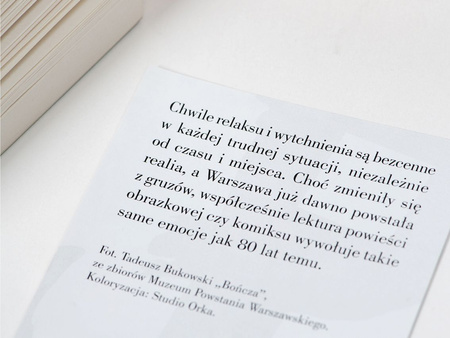 Chwile relaksu i wytchnienia są bezcenne
w każdej trudnej sytuacji, niezależnie
od czasu i miejsca. Choć zmieniły się
realia, a Warszawa już dawno powstała
z gruzów, współcześnie lektura powieści
obrazkowej czy komiksu wywołuje takie
same emocje jak 80 lat temu.
Fot. Tadeusz Bukowski „Bończa”,
ze zbiorów Muzeum Powstania Warszawskiego.
Koloryzacja: Studio Orka.